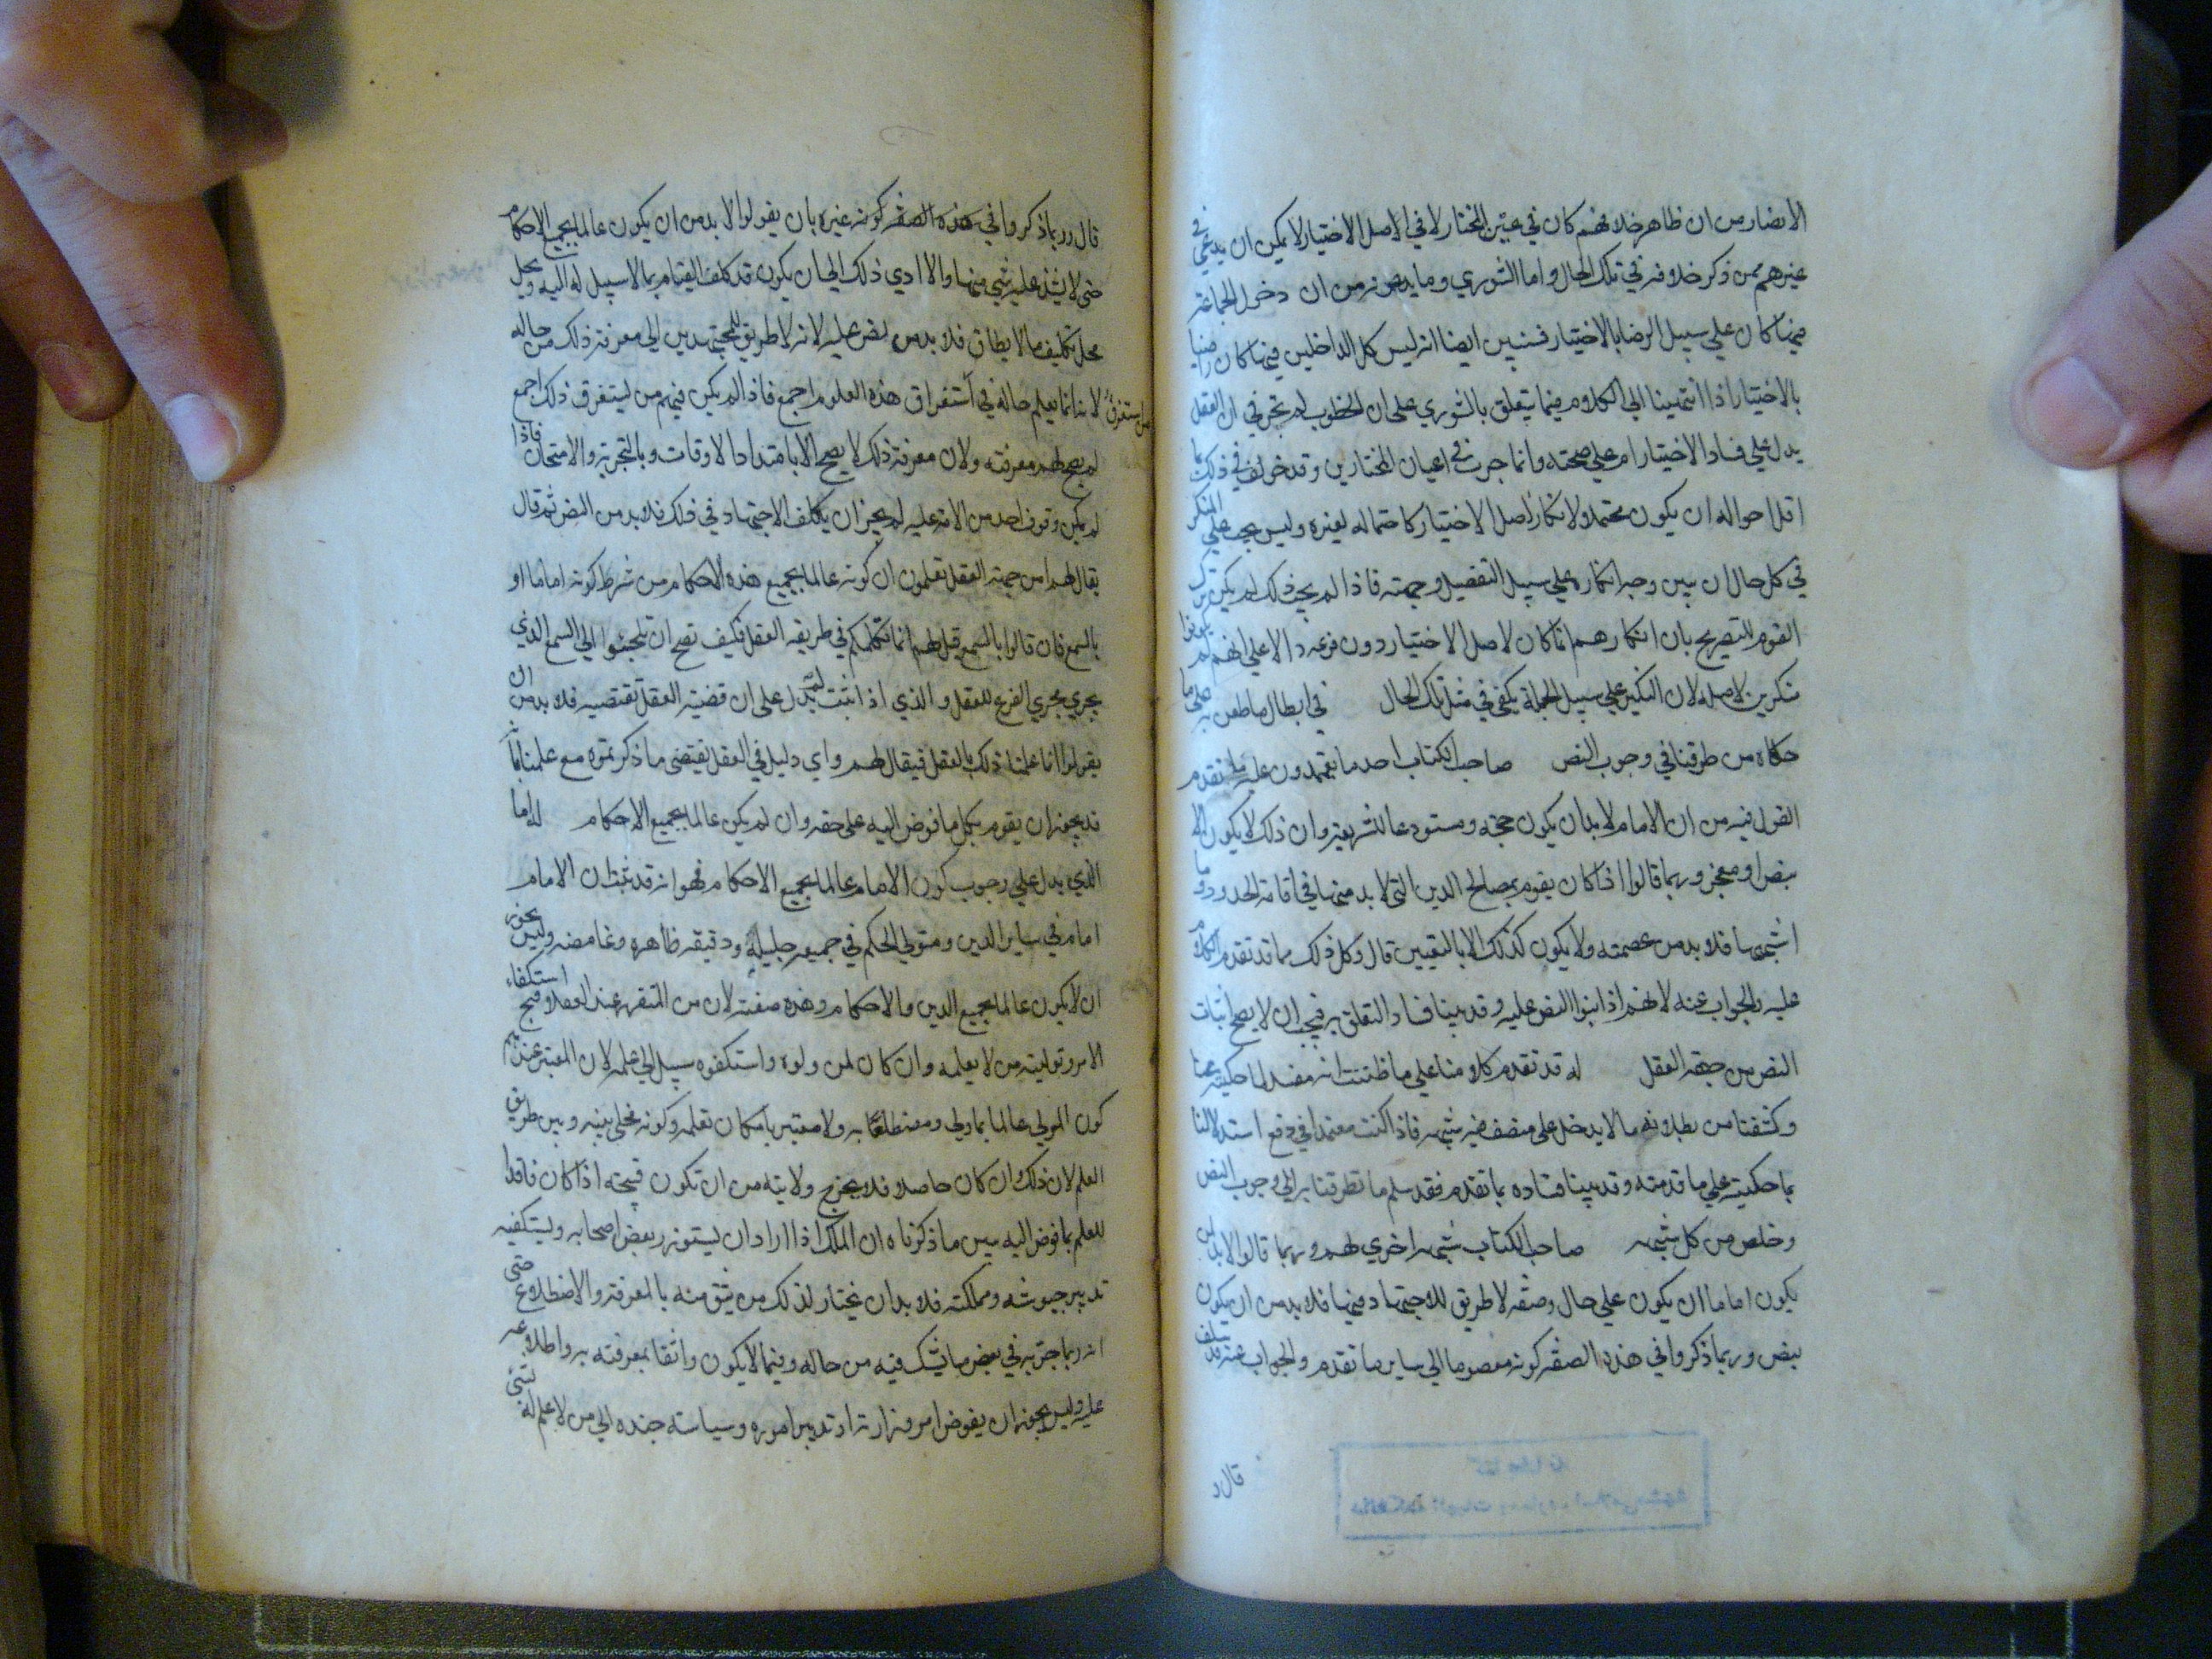 الانصار من ان ظاهر خلافهم كان في عين المختار لا في الاصل الاختيار لا يمكن ان يدعي في
غيرهم ممن ذكر خلافه في تلك الحال واما الشوري وما يدعونه من ان دخول الجماعة
فيها كان علي سبيل الرضا بالاختيار فسنبين ايضا انه ليس كل الداخلين فيها كان راضيا
بالاختيار اذا انتهينا الي الكلام فيما يتعلق بالشوري علي ان الخطوب لم تجر في ان العقل
يدل علي فساد الاختيار ام علي صحته وانما جرت في اعيان المختارين وقد خولف في ذلك بما
اقل احواله ان يكون محتملا لانكار اصل الاختيار كاحتماله لغيره وليس يجب علي المنكر
في كل حال ان يبين وجه انكاره علي سبيل التفصيل وجهته فاذا لم يجب ذلك لم يكن ترك
القوم للتصريح بان انكارهم انما كان لاصل الاختيار دون فرعه دالا علي انهم لم يكونوا
منكرين لاصله لان النكير علي سبيل الجملة يكفي في مثل تلك الحال في ابطال ما طعن به علي ما
حكاه من طرقنا في وجوب النص صاحب الكتاب احد ما يعتمدون عليه ما تقدم
القول فيه من ان الامام لا بد ان يكون حجة ومستودعا للشريعة وان ذلك لا يكون الا
بنص او معجز وربما قالوا اذا كان يقوم بمصالح الدين التي لا بد منها في اقامة الحدود وما
اشبهها فلا بد من عصمته ولا يكون كذلك الا بالتعيين قال وكل ذلك مما قد تقدم الكلام
عليه والجواب عنه لانهم اذا بنوا النص عليه وقد بينا فساد التعلق به فيجب ان لا يصح اثبات
النص من جهة العقل له قد تقدم كلامنا علي ما ظننت انه مفسد لما حكيته عنا
وكشفنا من بطلانه ما لا يدخل علي منصف فيه شبهه فاذا كنت معتمدا في دفع استدلالنا
بما حكيته علي ما قدمته وقد بينا فساده بما تقدم فقد سلم ما تطرقنا به الي وجوب النص
وخلص من كل شبهه صاحب الكتاب شبهه اخري لهم وربما قالوا لا بد من
يكون اماما ان يكون علي حال وصفه لا طريق للاجتهاد فيها فلا بد من ان يكون
بنص وربما ذكروا في هذه الصفه كونه معصوما الي ساير ما تقدم والجواب عنه قد سلف
قال و
قال وربما ذكروا في هذه الصفه كونه غيره بان يقولوا لا بد من ان يكون عالما بجميع الاحكام
حتي لا يشذ عليه شي منها والا ادي ذلك الي ان يكون قد كلف القيام بما لا سبيل له اليه ويحل
محل تكليف ما لا يطاق فلا بد من نص عليه لانه لا طريق للمجتهدين الي معرفة ذلك من حاله
لانه انما يعلم حاله في استغراق هذه العلوم اجمع فاذا لم يكن فيهم من يستغرق ذلك اجمع
لم يصح لهم معرفته ولان معرفة ذلك لا يصح الا بامتداد الاوقات وبالتجربة والامتحان فاذا
لم يكن وقوف احد من الامة عليه لم يجز ان يكلف الاجتهاد في ذلك فلا بد من النص ثم قال
يقال لهم امن جهة العقل تعلمون ان كونه عالما بجميع هذه الاحكام من شرط كونه اماما او
بالسمع فان قالوا بالسمع قيل لهم انما نكلمكم في طريقه العقل فكيف تصح ان تلجئوا الي السمع الذي
يجري مجري الفرع للعقل والذي اذا ثبت لم يدل علي ان قضية العقل تقتضيه فلا بد من ان
يقولوا انا علمنا ذلك بالعقل فيقال لهم واي دليل في العقل يقتضي ما ذكرتموه مع علمنا بانه
قد يجوز ان يقوم بكل ما فوض اليه علي حقه وان لم يكن عالما بجميع الاحكام له اما
الذي يدل علي وجوب كون الامام عالما بجميع الاحكام فهو انه قد ثبت ان الامام
امام في ساير الدين ومتولي الحكم في جميعه جليله ودقيقه ظاهره وغامضه وليس يجوز
ان لا يكون عالما بجميع الدين والاحكام وهذه صفته لان من المتقرر عند العقلا قبح استكفاء
الامر وتوليته من لا يعلمه وان كان لمن ولوه واستكفوه سبيل الي علمه لان المعتبر عندهم
كون المولي عالما بما ولي ومضطلعا به ولا معتبر بامكان تعلمه وكونه مخلي بينه وبين طريق
العلم لان ذلك وان كان حاصلا فلا يخرج ولايته من ان تكون قبيحة اذا كان فاقدا
للعلم بما فوض اليه يبين ما ذكرناه ان الملك اذا اراد ان يستوزر بعض اصحابه ويستكفيه
تدبير جيوشه ومملكته فلا بد ان يختار لذلك من يثق منه بالمعرفة والاضطلاع حتي
انه ربما جربه في بعض ما يشك فيه من حاله وفيما لا يكون واثقا بمعرفته به واطلاعه
عليه وليس يجوز ان يفوض امر وزارته او تدبير اموره وسياسة جنده الي من لا علم له بشي